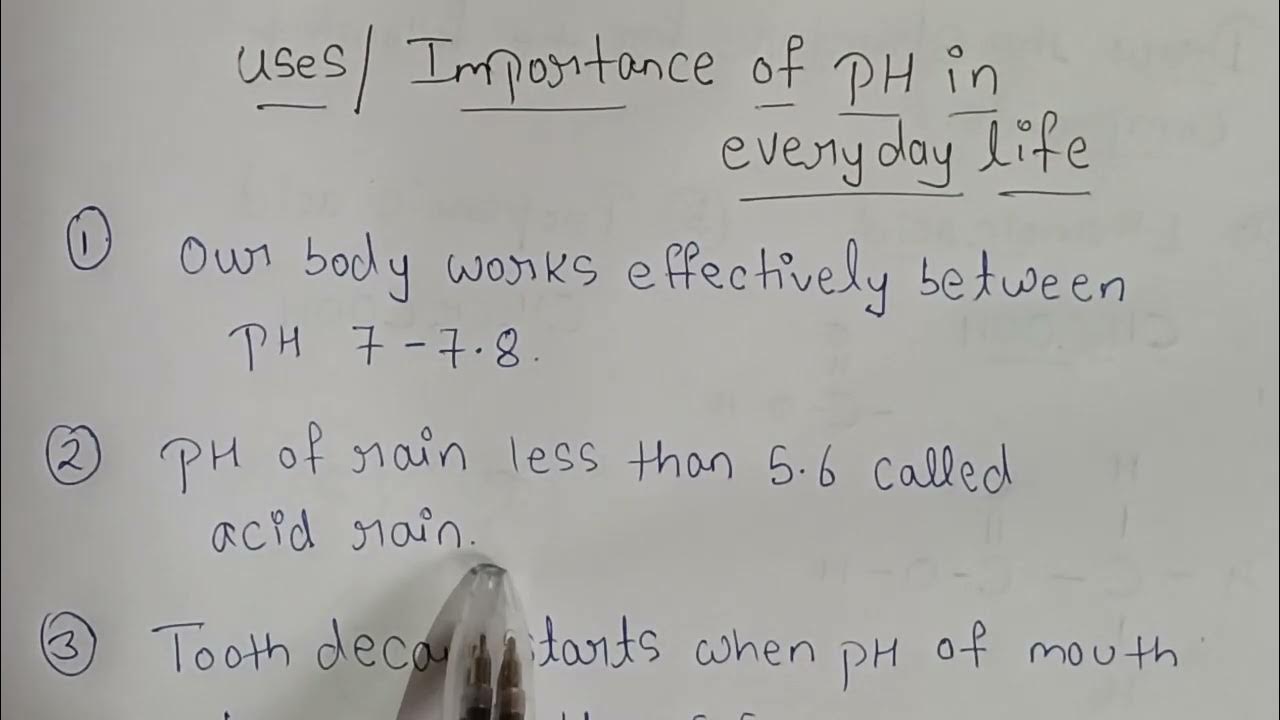 uses/ Importance of pH in
everyday life
① Our body works effectively between
pH 7-7.8.
② pH of rain less than 5.6 called
acid rain.
③ Tooth starts when pH of mouth